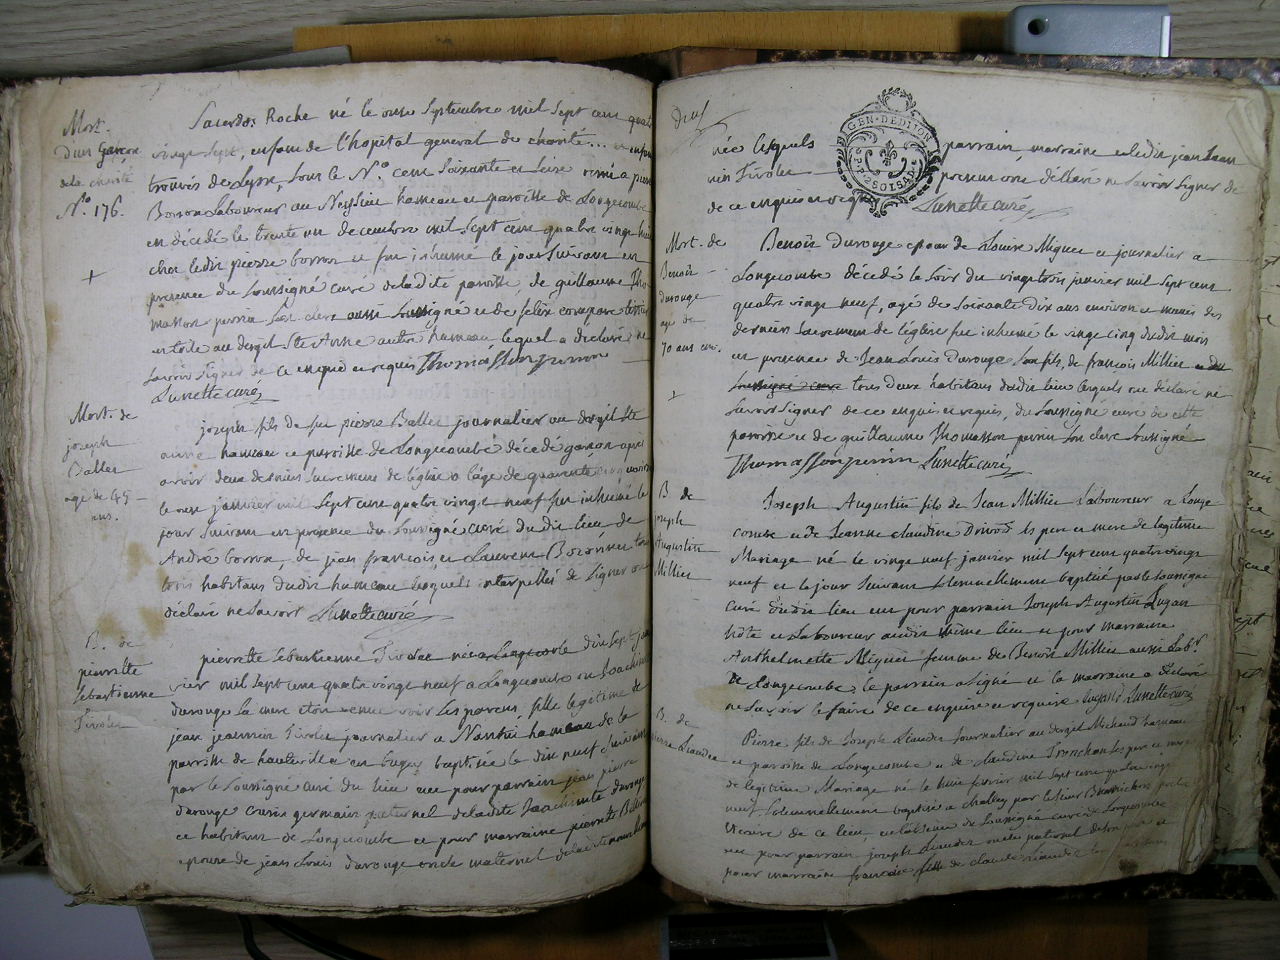 Mort.
d'un Garçon
de la charité
N.º 176.
Sacerdos Roche né le onze Septembre mil Sept cent quatre
vingt Sept, enfant de l'hopital general de charité... 
trouvés de Lyon, Sous le N.º cent Soixante et Seize remi a pierre
Borron Laboureur au Neyssieu hameau et paroisse de Longecombe
en décédé le trente un decembre mil Sept cent quatre vingt huit
chez ledit pierre borron et fut inhumé le jour Suivant en
presence du Soussigné curé deladite paroisse, de guillaume Tho-
masson perrin Son clerc aussi Soussigné et de felix
entoile au dergit Ste Anne autre hameau, lequel a déclaré ne
Savoir Signer de ce enquis et requis Thomasson perrin
Lunette curé
Mort. de
joseph
Ballet
age de 45
ans.
joseph fils de feu pierre Ballet journalier au dergit Ste
anne hameau et paroisse de Longecombe décédé garcon apres
avoir deux derniers Sacremens de l'église a l'âge de quarente cinq ans
le onze janvier mil Sept cent quatre vingt neuf fut inhumé le
jour Suivant en presence du Soussigné curé du dit lieu de
André borron, de jean francois, et Laurent Bozonnet tous
trois habitans dudit hameau lesquels interpellés de Signer ont
déclaré ne Savoir Lunette curé
B. de
pierrette
Sebastienne
Tivolet
pierrette Sebastienne Tivolet née a Longecombe dix Sept jan
vier mil Sept cent quatre vingt neuf a Longecombe ou Joachime
durouge la mere etoit venue voir Ses parens, fille legitime de
jean jeannin Tivolet journalier a Nantui hameau de la
paroisse de hauteville en bugey baptisée le dix neuf Suivant
par le Soussigné curé du lieu eut pour parrain jean pierre
durouge cousin germain paternel deladite Joachime durouge
et habitant de Longecombe et pour marraine pierrette Ballet
epouse de jean Louis durouge oncle maternel delad
deux
née lesquels parrain, marraine et ledit jean Jean
nin Tivolet present ont déclaré ne Savoir Signer de
de ce enquis et requis Lunette curé
GEN. DE DIJON
P. 2 SOLS A D.
Mort. de
Benoit
durouge
agé de
70 ans env.
Benoit durouge epoux de Louise Miguet et journalier a
Longecombe décédé le Soir du vingt trois janvier mil Sept cent
quatre vingt neuf, agé de Soixante Dix ans environ et munis des
derniers Sacremens de l'église fut inhumé le vingt cinq dudit mois
en presence de Jean Louis durouge Son fils, de françois Millier et du
Soussigné curé tres deux habitans dudit lieu lesquels ont déclaré ne
Savoir Signer de ce enquis et requis, du Soussigné curé de cette
paroisse et de guillaume Thomasson perrin Son clerc Soussigné
Thomasson perrin Lunette curé
B. de
joseph
Augustin
Millier
Joseph Augustin fils de Jean Millier Laboureur a Longe
combe et de Jeanne claudine Drivod Ses pere et mere de legitime
Mariage né le vingt neuf janvier mil Sept cent quatre vingt
neuf et le jour Suivant Solennellement baptisé par le Soussigné
curé dudit lieu eut pour parrain Joseph Augustin Lugan
hôte et Laboureur audit même lieu et pour marraine
Anthelmette Miguet femme de Benoit Millier aussi Labr.
de Longecombe, le parrain a Signé et la marraine a déclaré
ne Savoir le faire de ce enquise et requise Lunette curé
B. de
pierre Liaudet
Pierre fils de Joseph Liaudet Journalier au dergit Michaud hameau
et paroisse de Longecombe et de claudine Tronchon Ses pere et mere
de legitime Mariage né le huit fevrier mil Sept cent quatre vingt
neuf Solennellement baptisé a challey par le Sieur
vicaire de ce lieu, en l'absence du Soussigné curé de Longecombe
eut pour parrain joseph Liaudet
pour marraine francoise fille de claude Liaudet